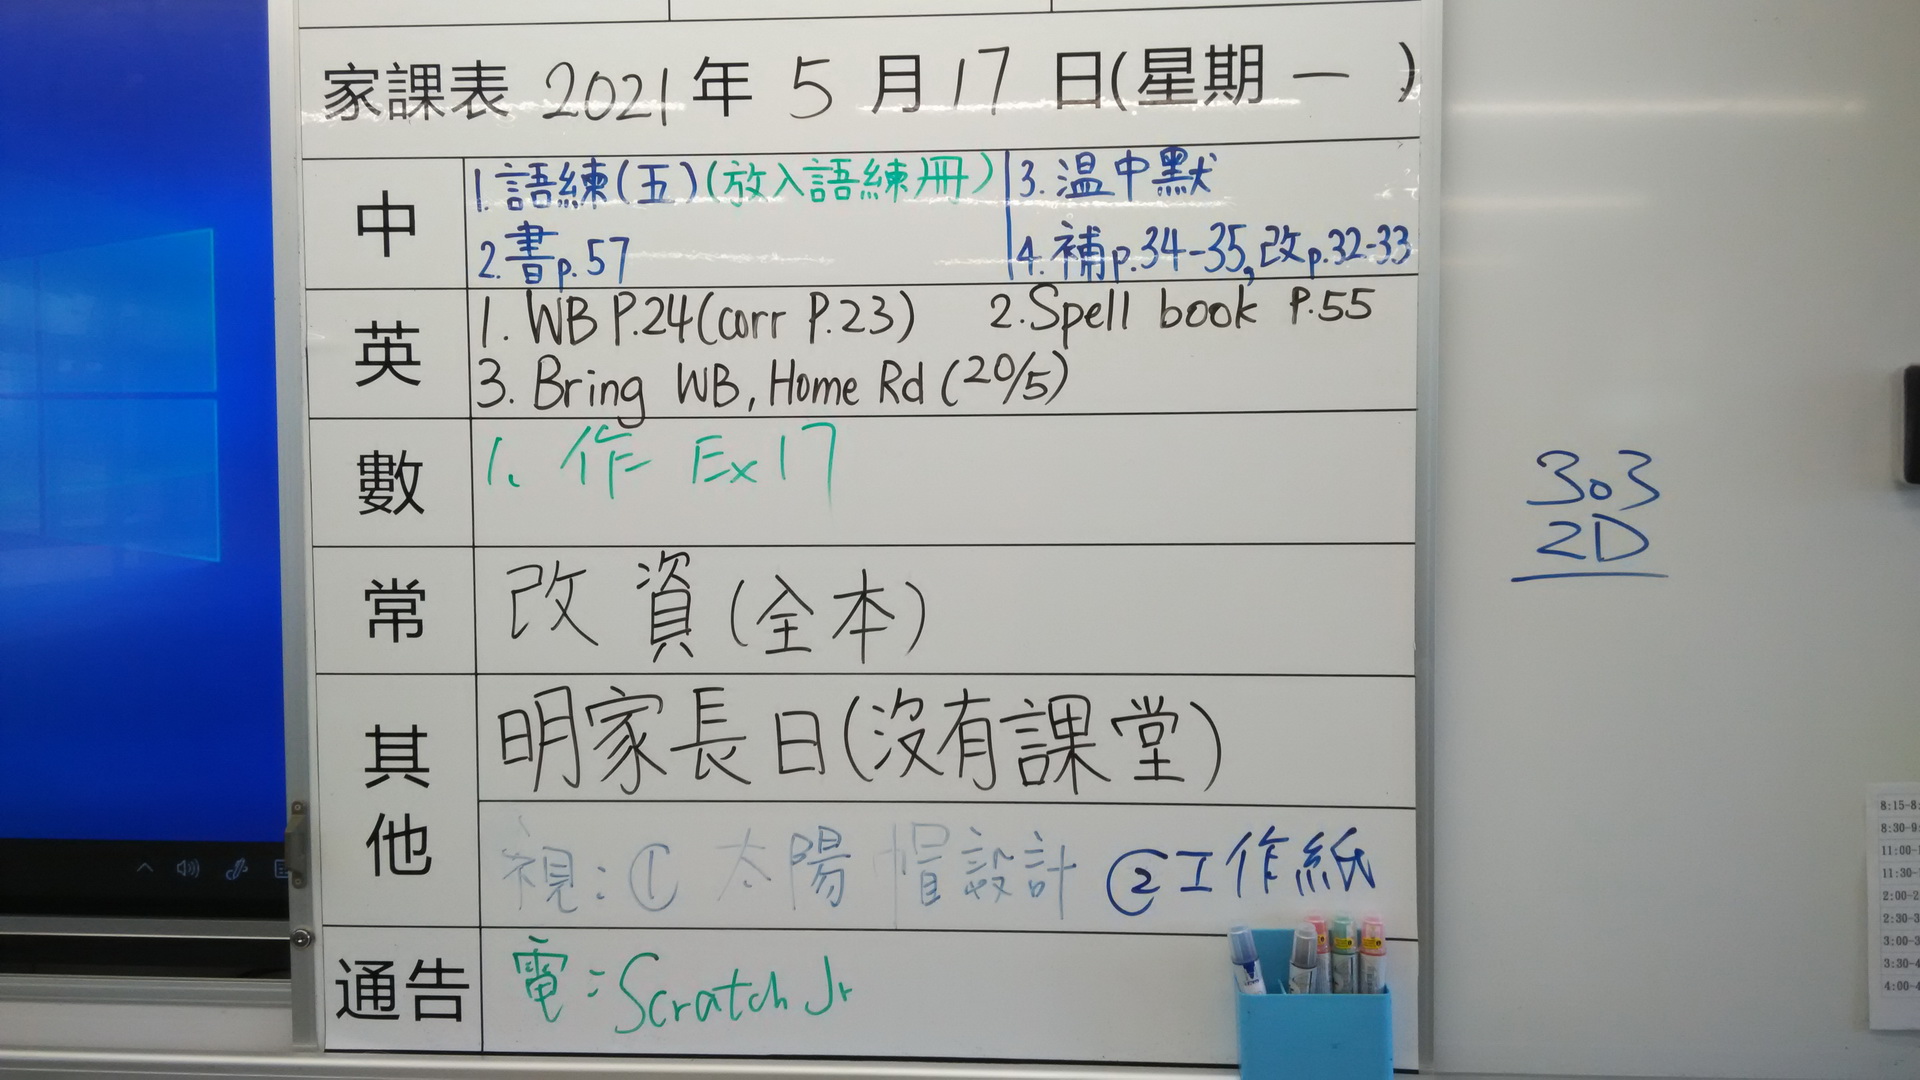 家課表 2021年 5 月 17 日(星期 一 )
中
1. 語練(五)(放入語練冊)
2. 書p.57
3. 温中默
4. 補p.34-35, 改p.32-33
英
1. WB P.24(corr P.23) 2. Spell book P.55
3. Bring WB, Home Rd (20/5)
數
1. 作 Ex17
常
改 資(全本)
其他
明家長日(沒有課堂)
視:① 太陽帽設計 ②工作紙
通告
電:Scratch Jr
303
2D
8:15-8:
8:30-9:
11:00-
11:30-
2:00-2
2:30-3
3:00-3
3:30-4
4:00-4